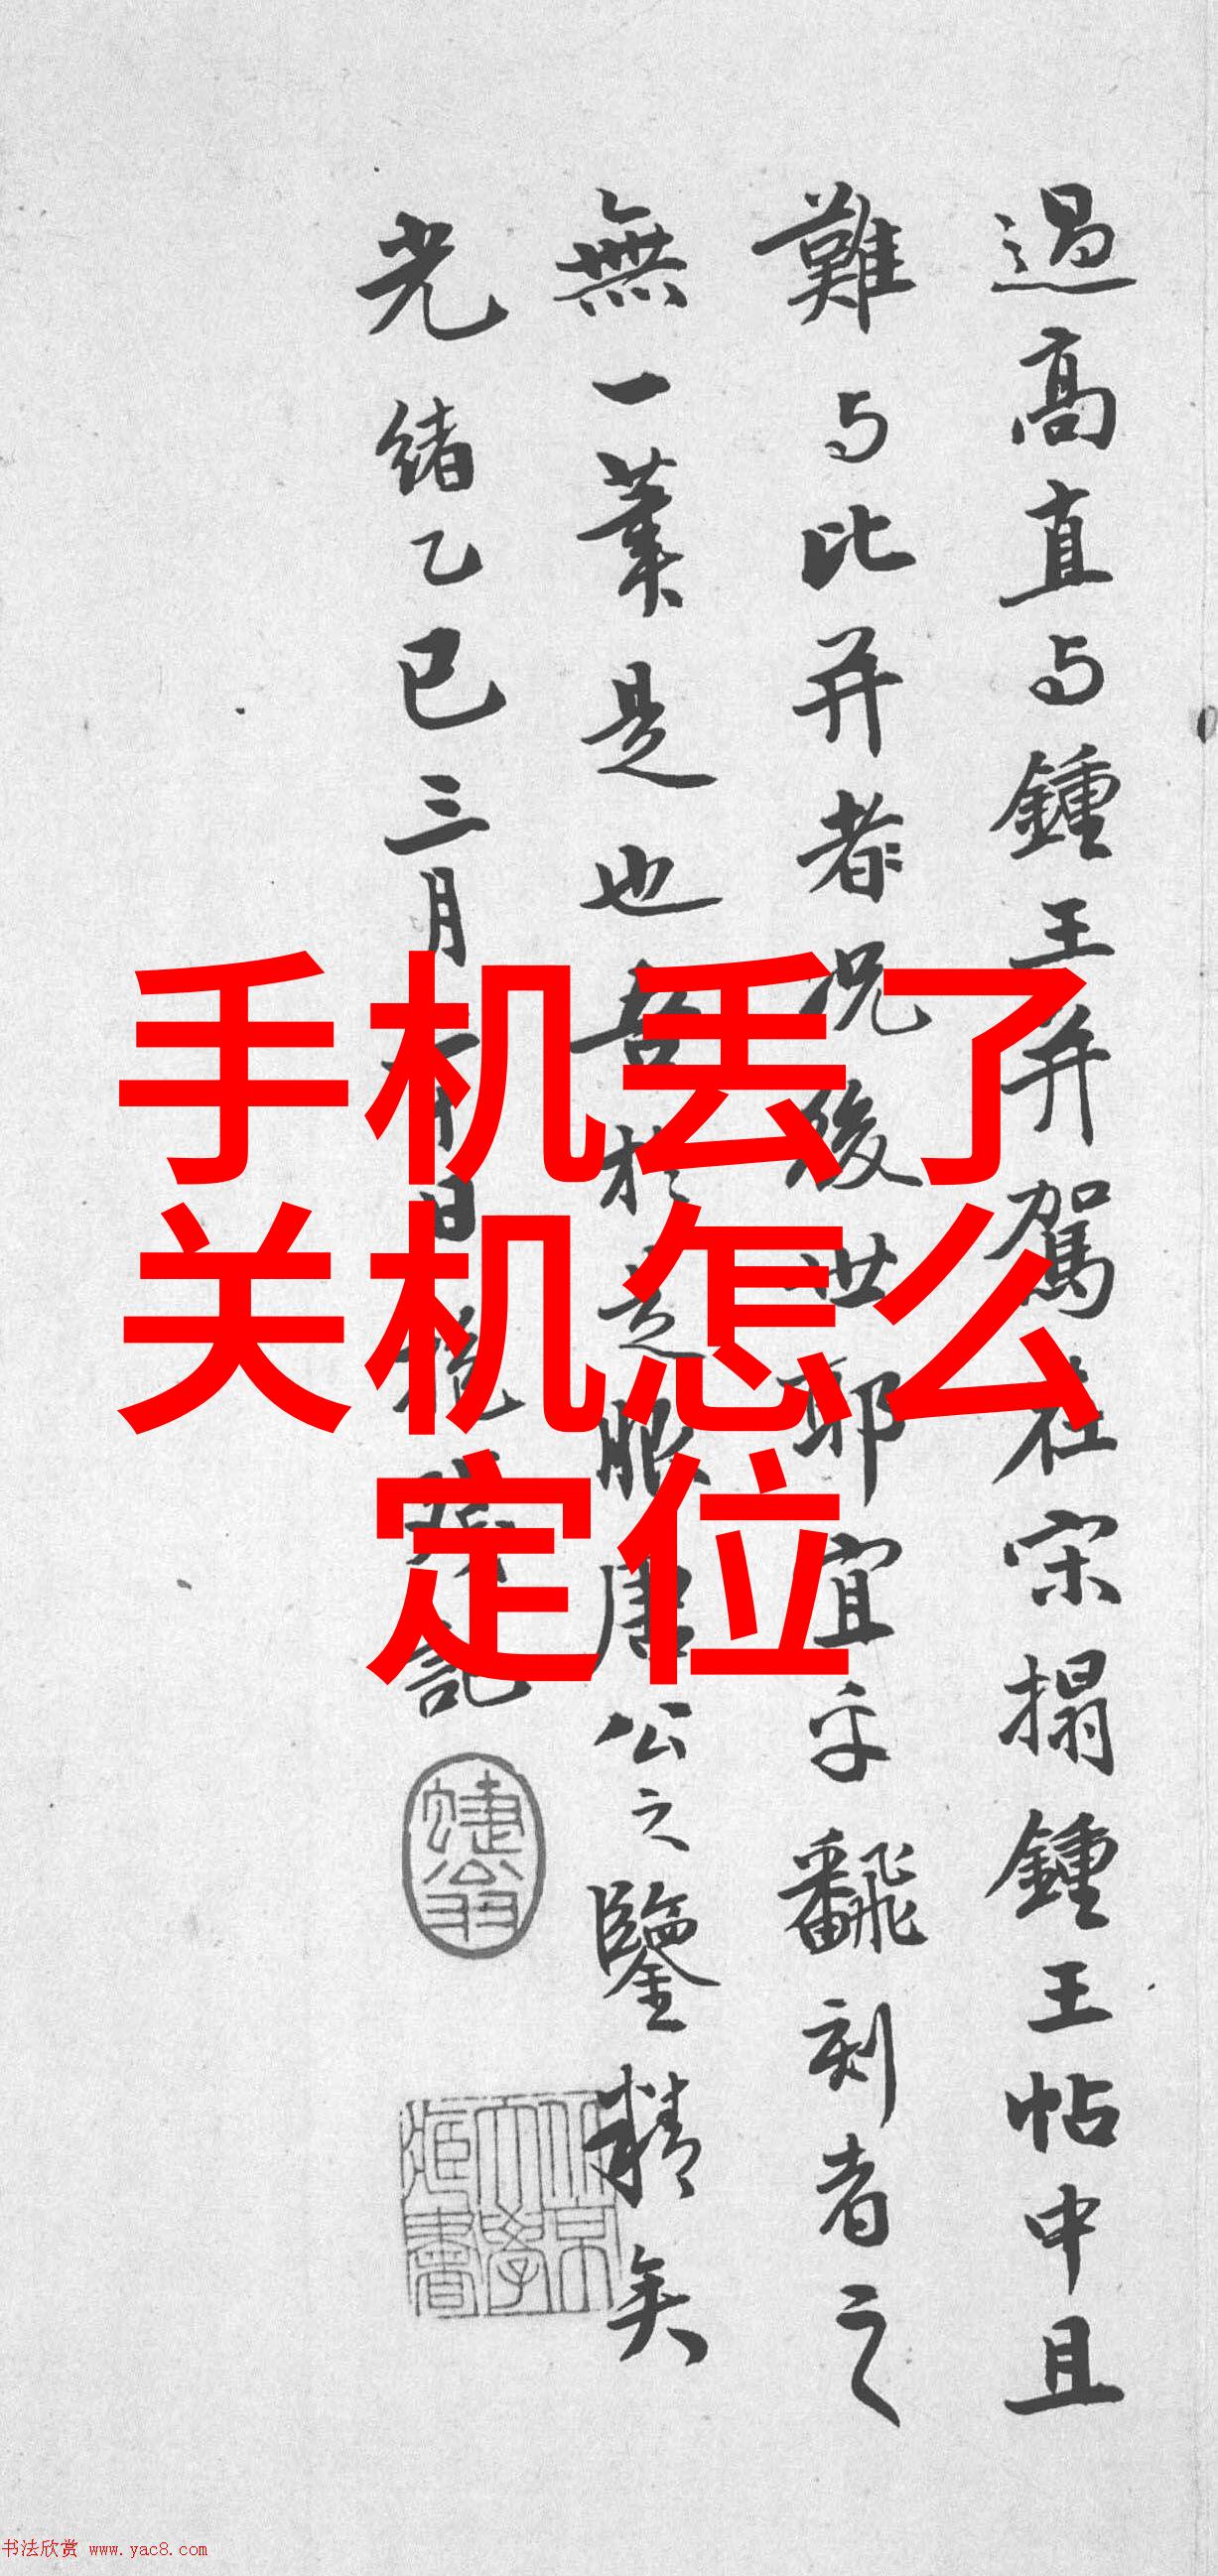 過高直与鍾王并駕在宋搨鍾王帖中且
難与比并者況後世耶宜乎翻刻者之
無一業是也吾於是服唐公之鑒精矣
光緒乙巳三月日記
手机丢了
关机怎么
定位
书法欣赏 www.yac8.com